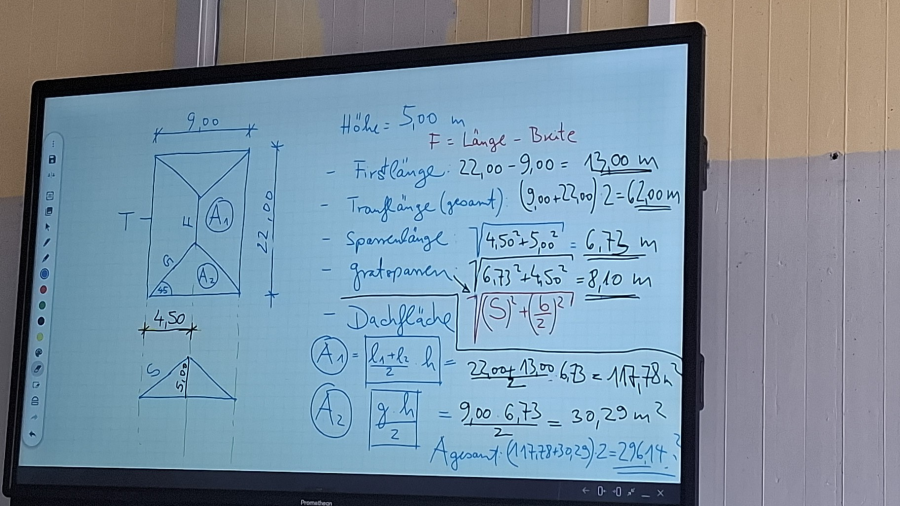 9,00
22,00
T
F
A1
G
A2
45
4,50
S
5,00
Höhe = 5,00 m
F = Länge - Breite
- Firstlänge: 22,00 - 9,00 = 13,00 m
- Trauflänge (gesamt): (9,00+22,00) 2 = 62,00 m
- Sparrenlänge √4,50²+5,00² = 6,73 m
- gratsparren: √6,73²+4,50² = 8,10 m
√(S)²+(b/2)²
- Dachfläche
A1 = l1+l2/2 · h = 22,00+13,00/2 · 6,73 = 117,78 m²
A2 g h/2 = 9,00 · 6,73/2 = 30,29 m²
A gesamt: (117,78+30,29) 2 = 296,14 ²
Promethean